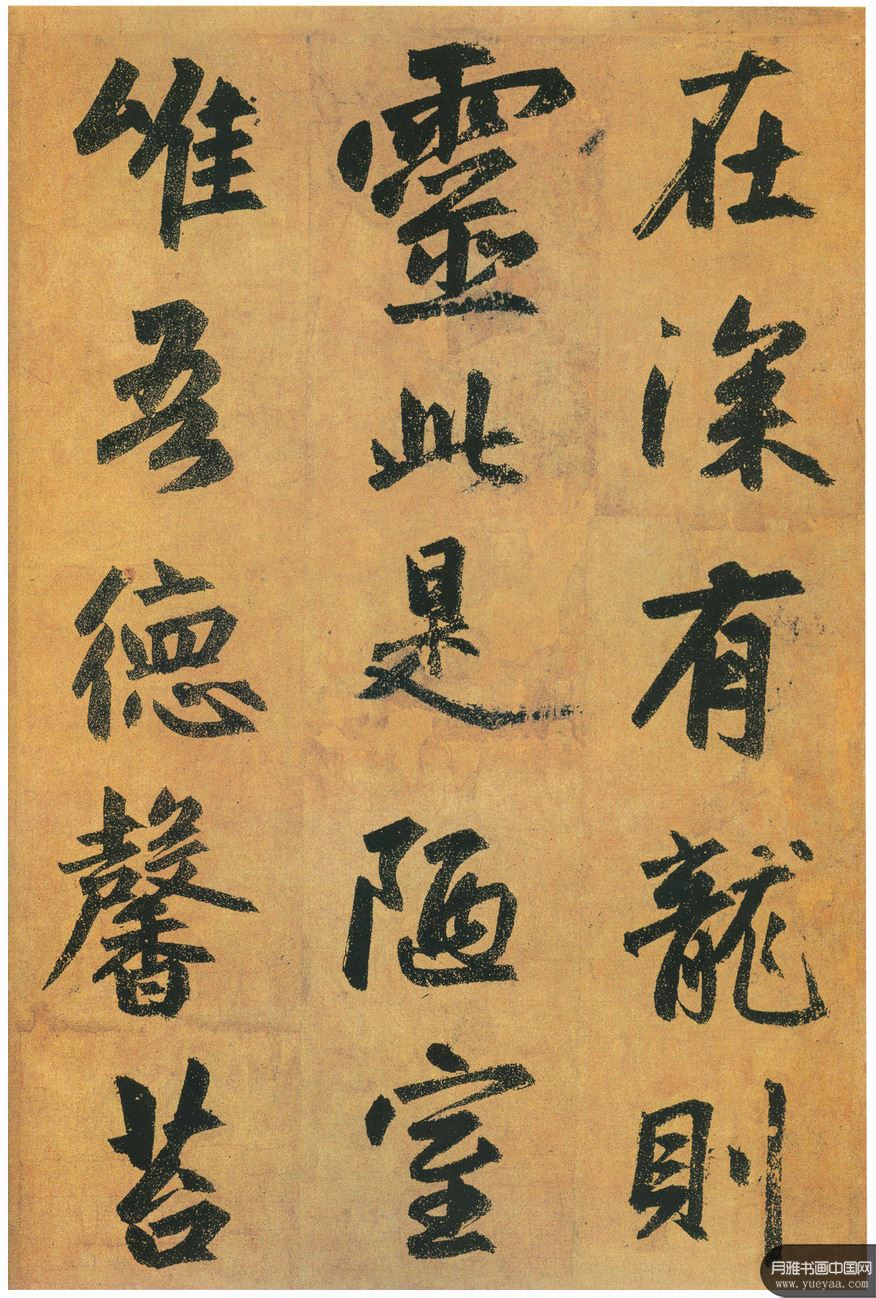 在深有龍則
靈此是陋室
唯吾德馨苔
月雅书画中国网
www.yueyaa.com